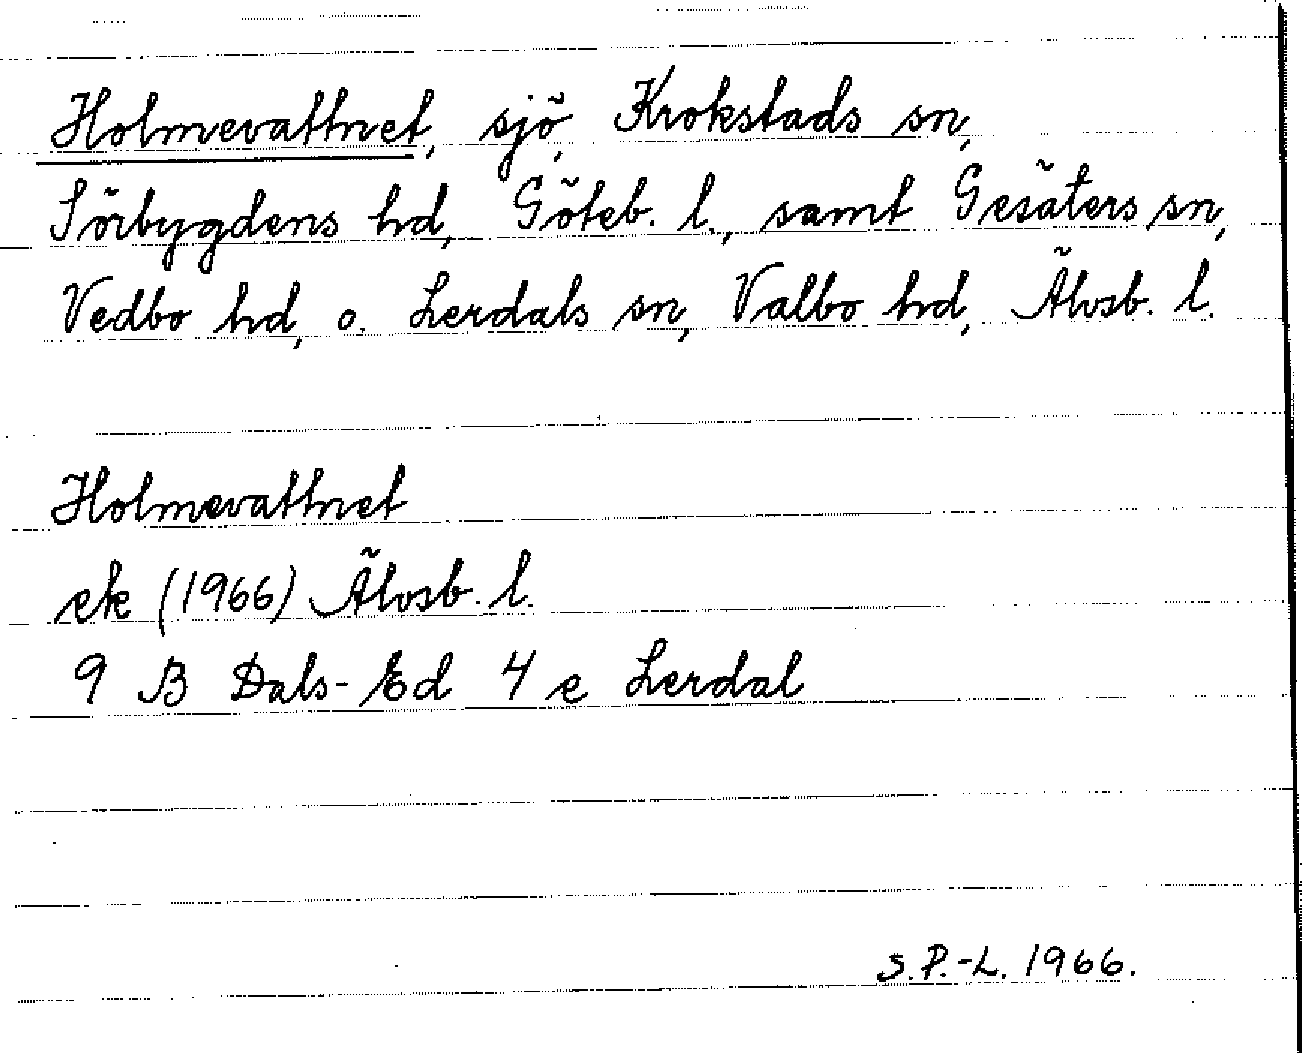 Holmevattnet, sjö, Krokstads sn,
Sörbygdens hd, Göteb. l., samt Gesäters sn,
Vedbo hd, o. Lerdals sn, Valbo hd, Älvsb. l.
Holmevattnet
ek (1966) Älvsb. l.
9 B Dals-Ed 4 e Lerdal
S.P.-L. 1966.